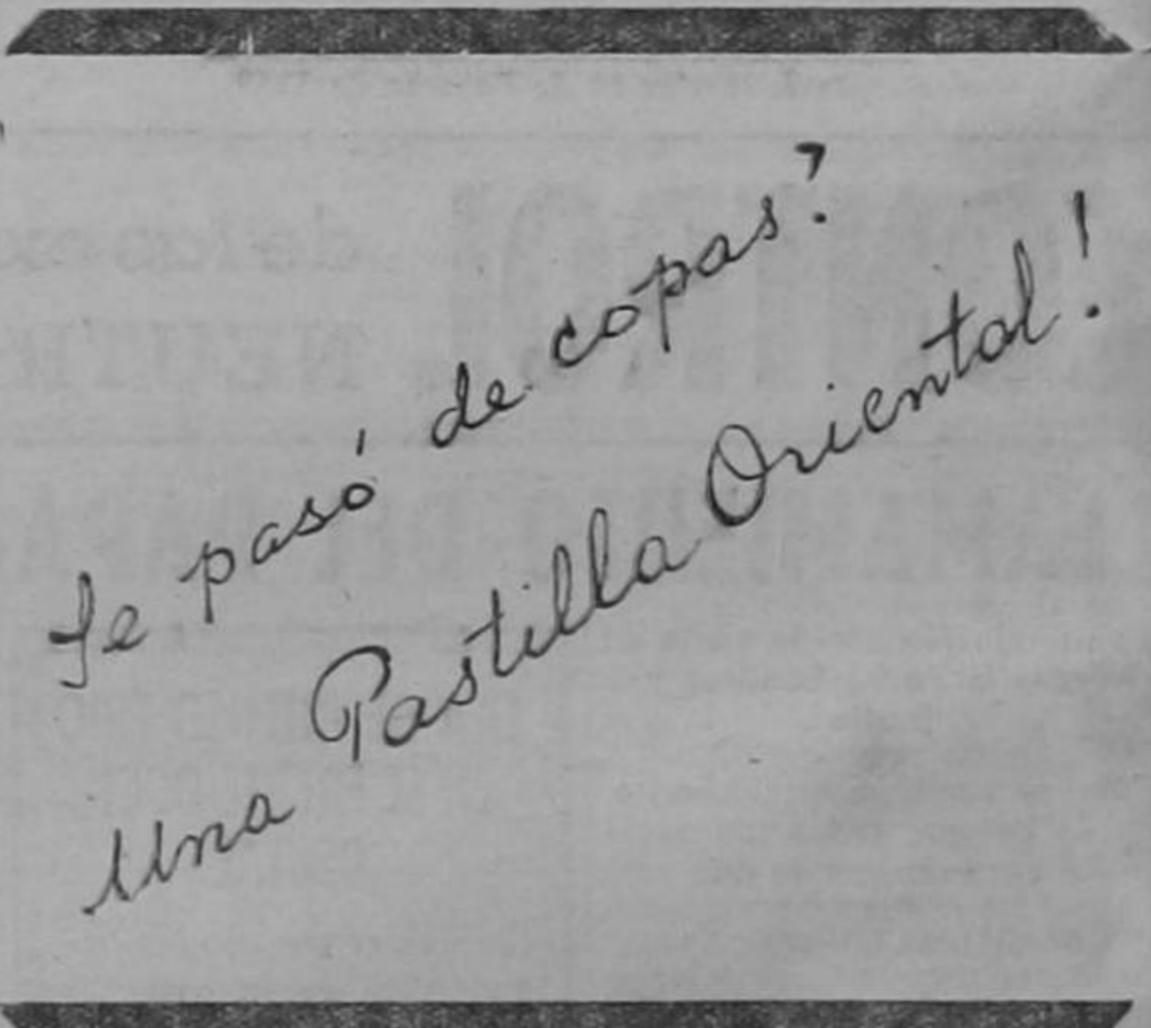 Se pasó de copas?
Una Pastilla Oriental!